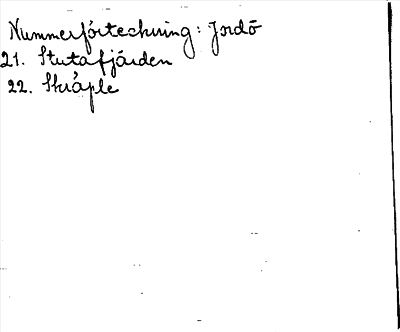 Nummerförteckning: Jordö
21. Stutafjärden
22. Skråple